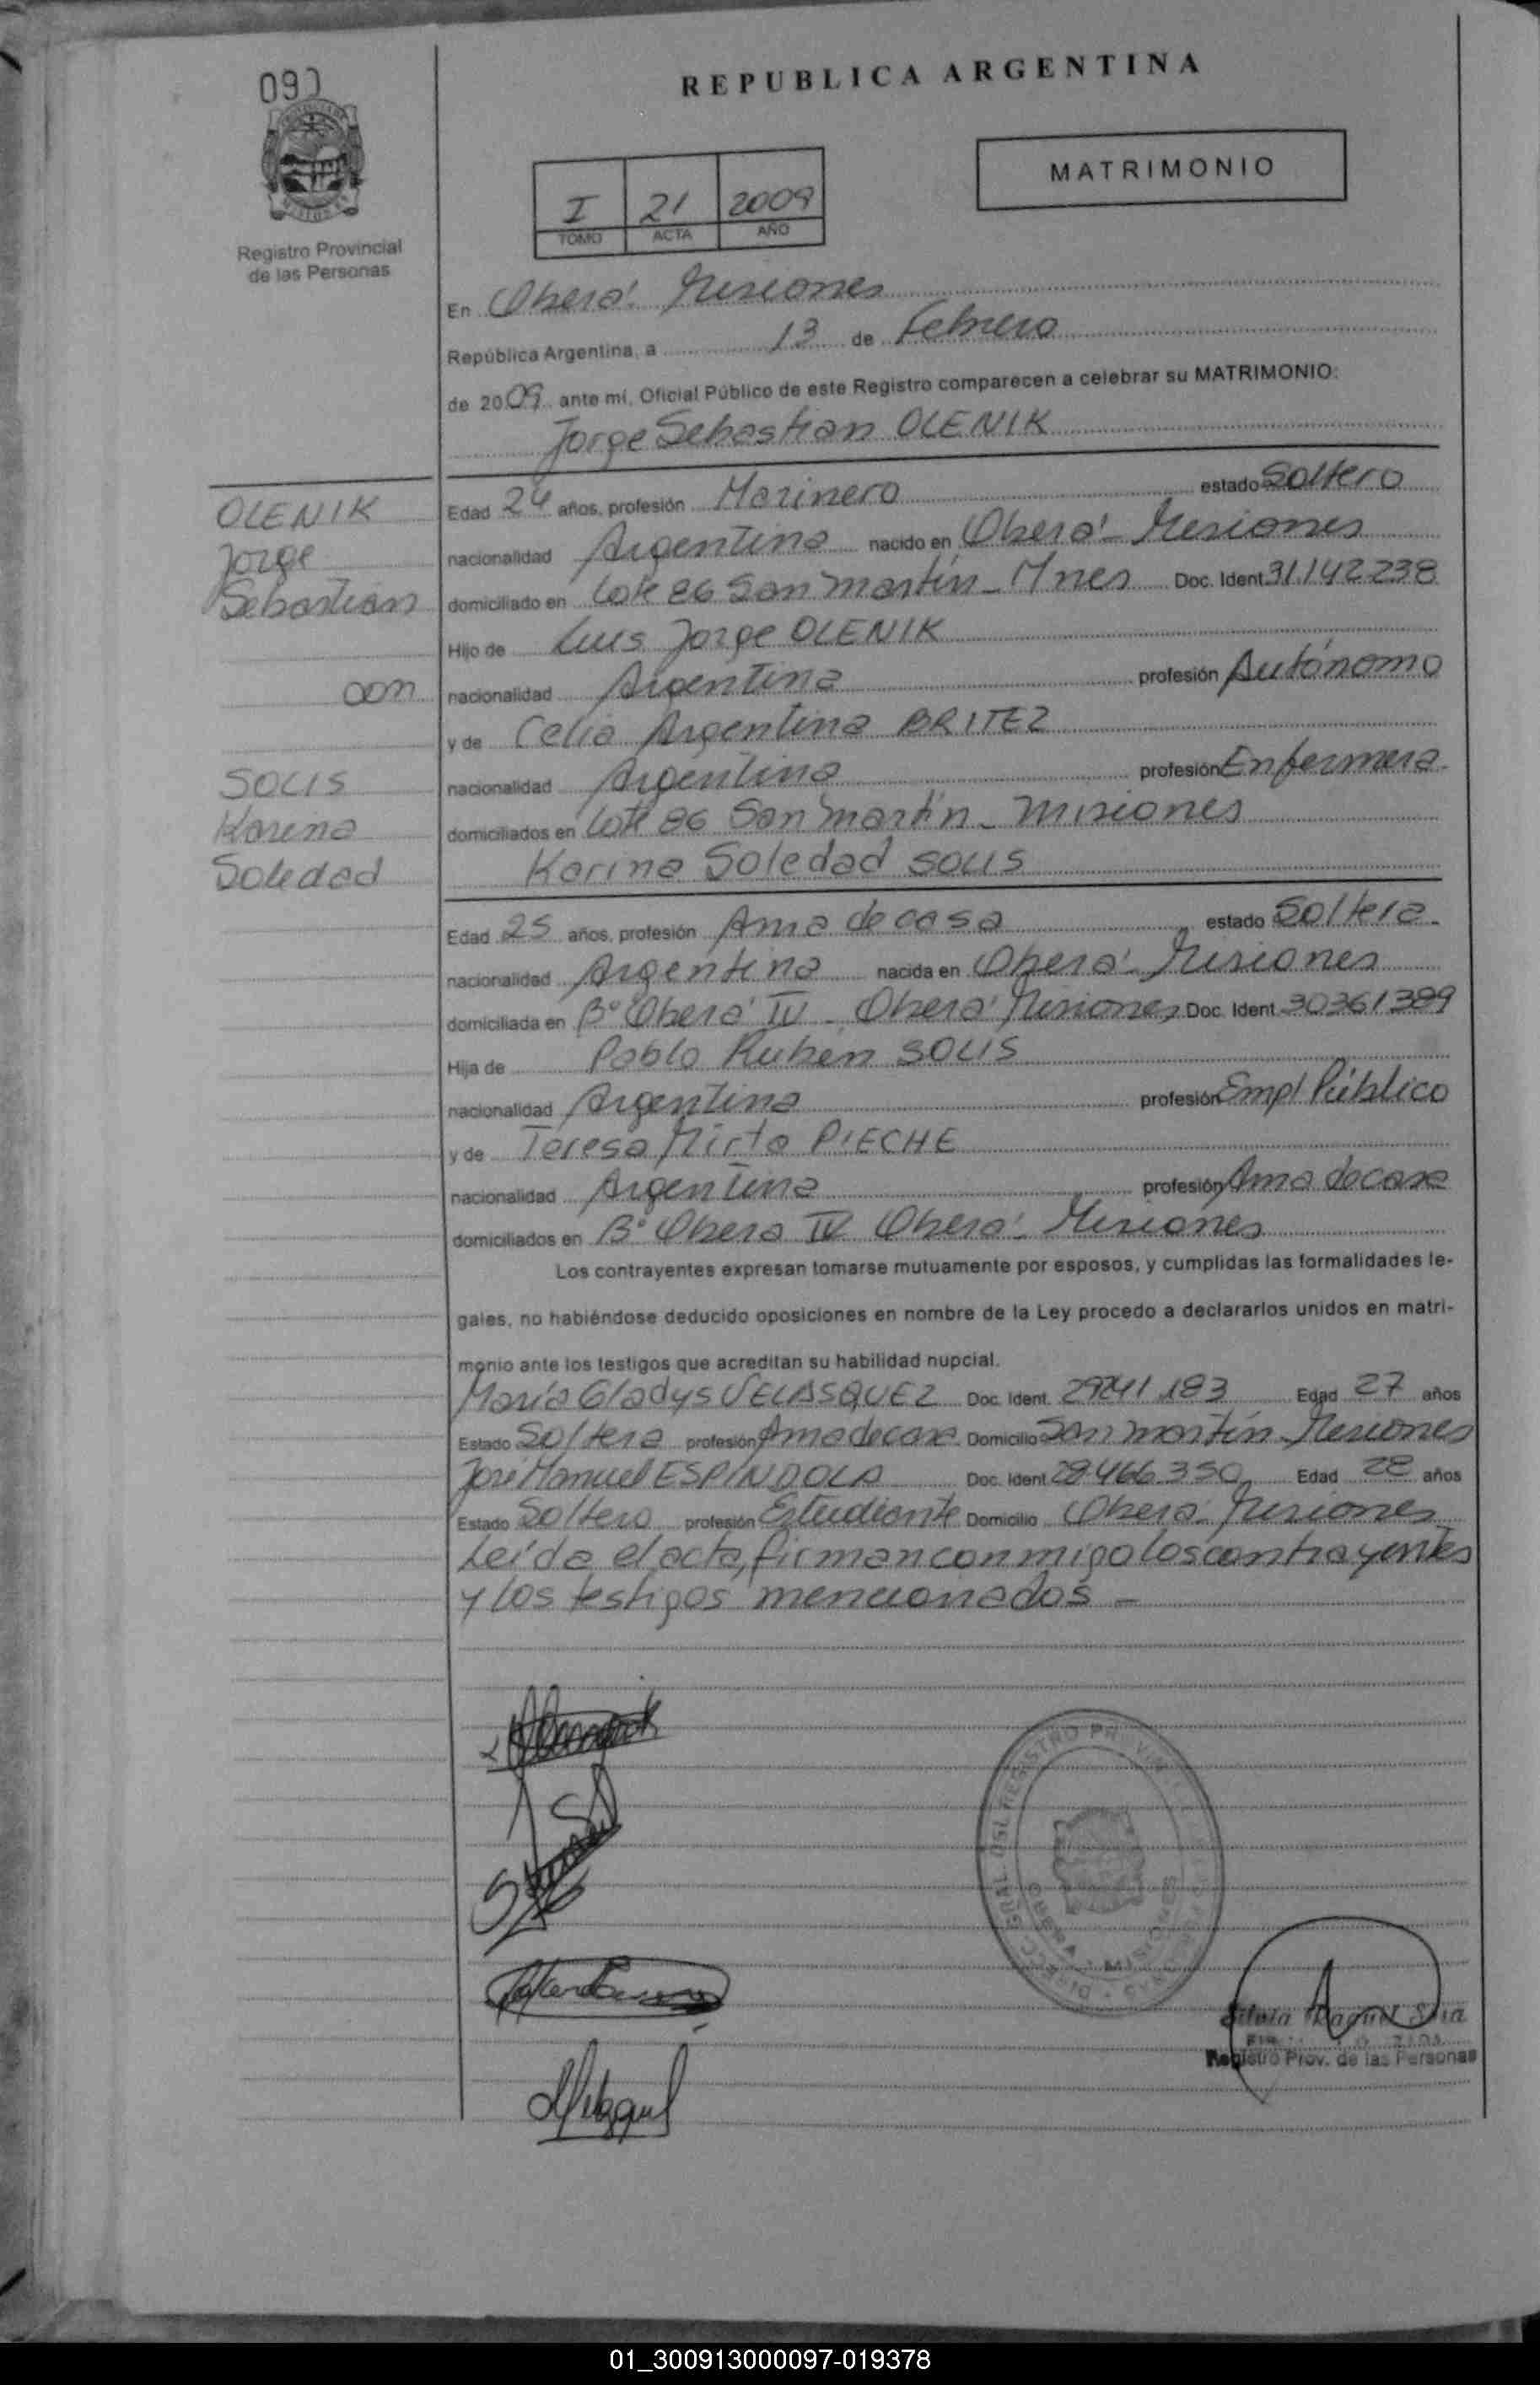 REPUBLICA ARGENTINA
MATRIMONIO
I 21 2009
TOMO ACTA AÑO
Registro Provincial
de las Personas
En Oberá Misiones
República Argentina, a 13 de Febrero
de 2009 ante mí, Oficial Público de este Registro comparecen a celebrar su MATRIMONIO:
Jorge Sebastian OLENIK
OLENIK
Jorge
Sebastián
con
SOLIS
Karina
Soledad
Edad 24 años, profesión Marinero estado Soltero
nacionalidad Argentina nacido en Oberá - Misiones
domiciliado en Lote 86 San Martín - Mnes Doc. Ident. 31.142.238
Hijo de Luis Jorge OLENIK
nacionalidad Argentina profesión Autónomo
y de Celia Argentina BRITEZ
nacionalidad Argentina profesión Enfermera
domiciliados en Lote 86 San Martín - Misiones
Karina Soledad SOLIS
Edad 25 años, profesión Ama de casa estado Soltera
nacionalidad Argentina nacida en Oberá - Misiones
domiciliada en B° Oberá IV - Oberá Misiones Doc. Ident. 30361389
Hija de Pablo Ruben SOLIS
nacionalidad Argentina profesión Empl Público
y de Teresa Mirta PIECHE
nacionalidad Argentina profesión Ama de casa
domiciliados en B° Obera IV Oberá - Misiones
Los contrayentes expresan tomarse mutuamente por esposos, y cumplidas las formalidades le-
gales, no habiéndose deducido oposiciones en nombre de la Ley procedo a declararlos unidos en matri-
monio ante los testigos que acreditan su habilidad nupcial.
María Gladys VELASQUEZ Doc. Ident. 29241.183 Edad 27 años
Estado Soltera profesión Ama de casa Domicilio San Martín - Misiones
José Manuel ESPINDOLA Doc. Ident. 28.466.350 Edad 28 años
Estado Soltero profesión Estudiante Domicilio Oberá - Misiones
Leída el acta, firman conmigo los contrayentes
y los testigos mencionados -
Registro Prov. de las Personas
01_300913000097-019378